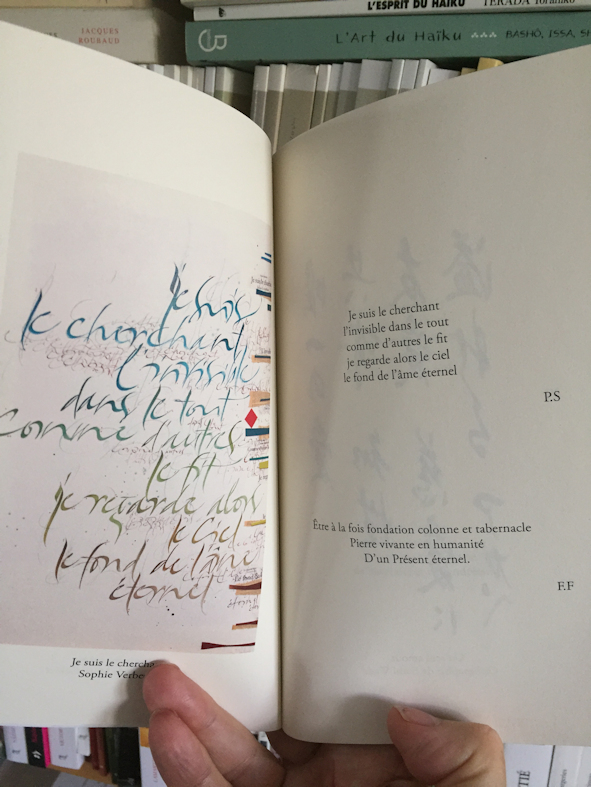 JACQUES
ROUBAUD
L'ESPRIT DU HAÏKU TERADA Torahiko
L'Art du Haïku BASHÔ, ISSA,
Je suis
le cherchant
l'invisible
dans le tout
comme d'autres
le fit
je regarde alors
le ciel
le fond de l'âme
éternel
Je suis le chercha
Sophie Verbe
Je suis le cherchant
l'invisible dans le tout
comme d'autres le fit
je regarde alors le ciel
le fond de l'âme éternel
P.S
Être à la fois fondation colonne et tabernacle
Pierre vivante en humanité
D'un Présent éternel.
F.F